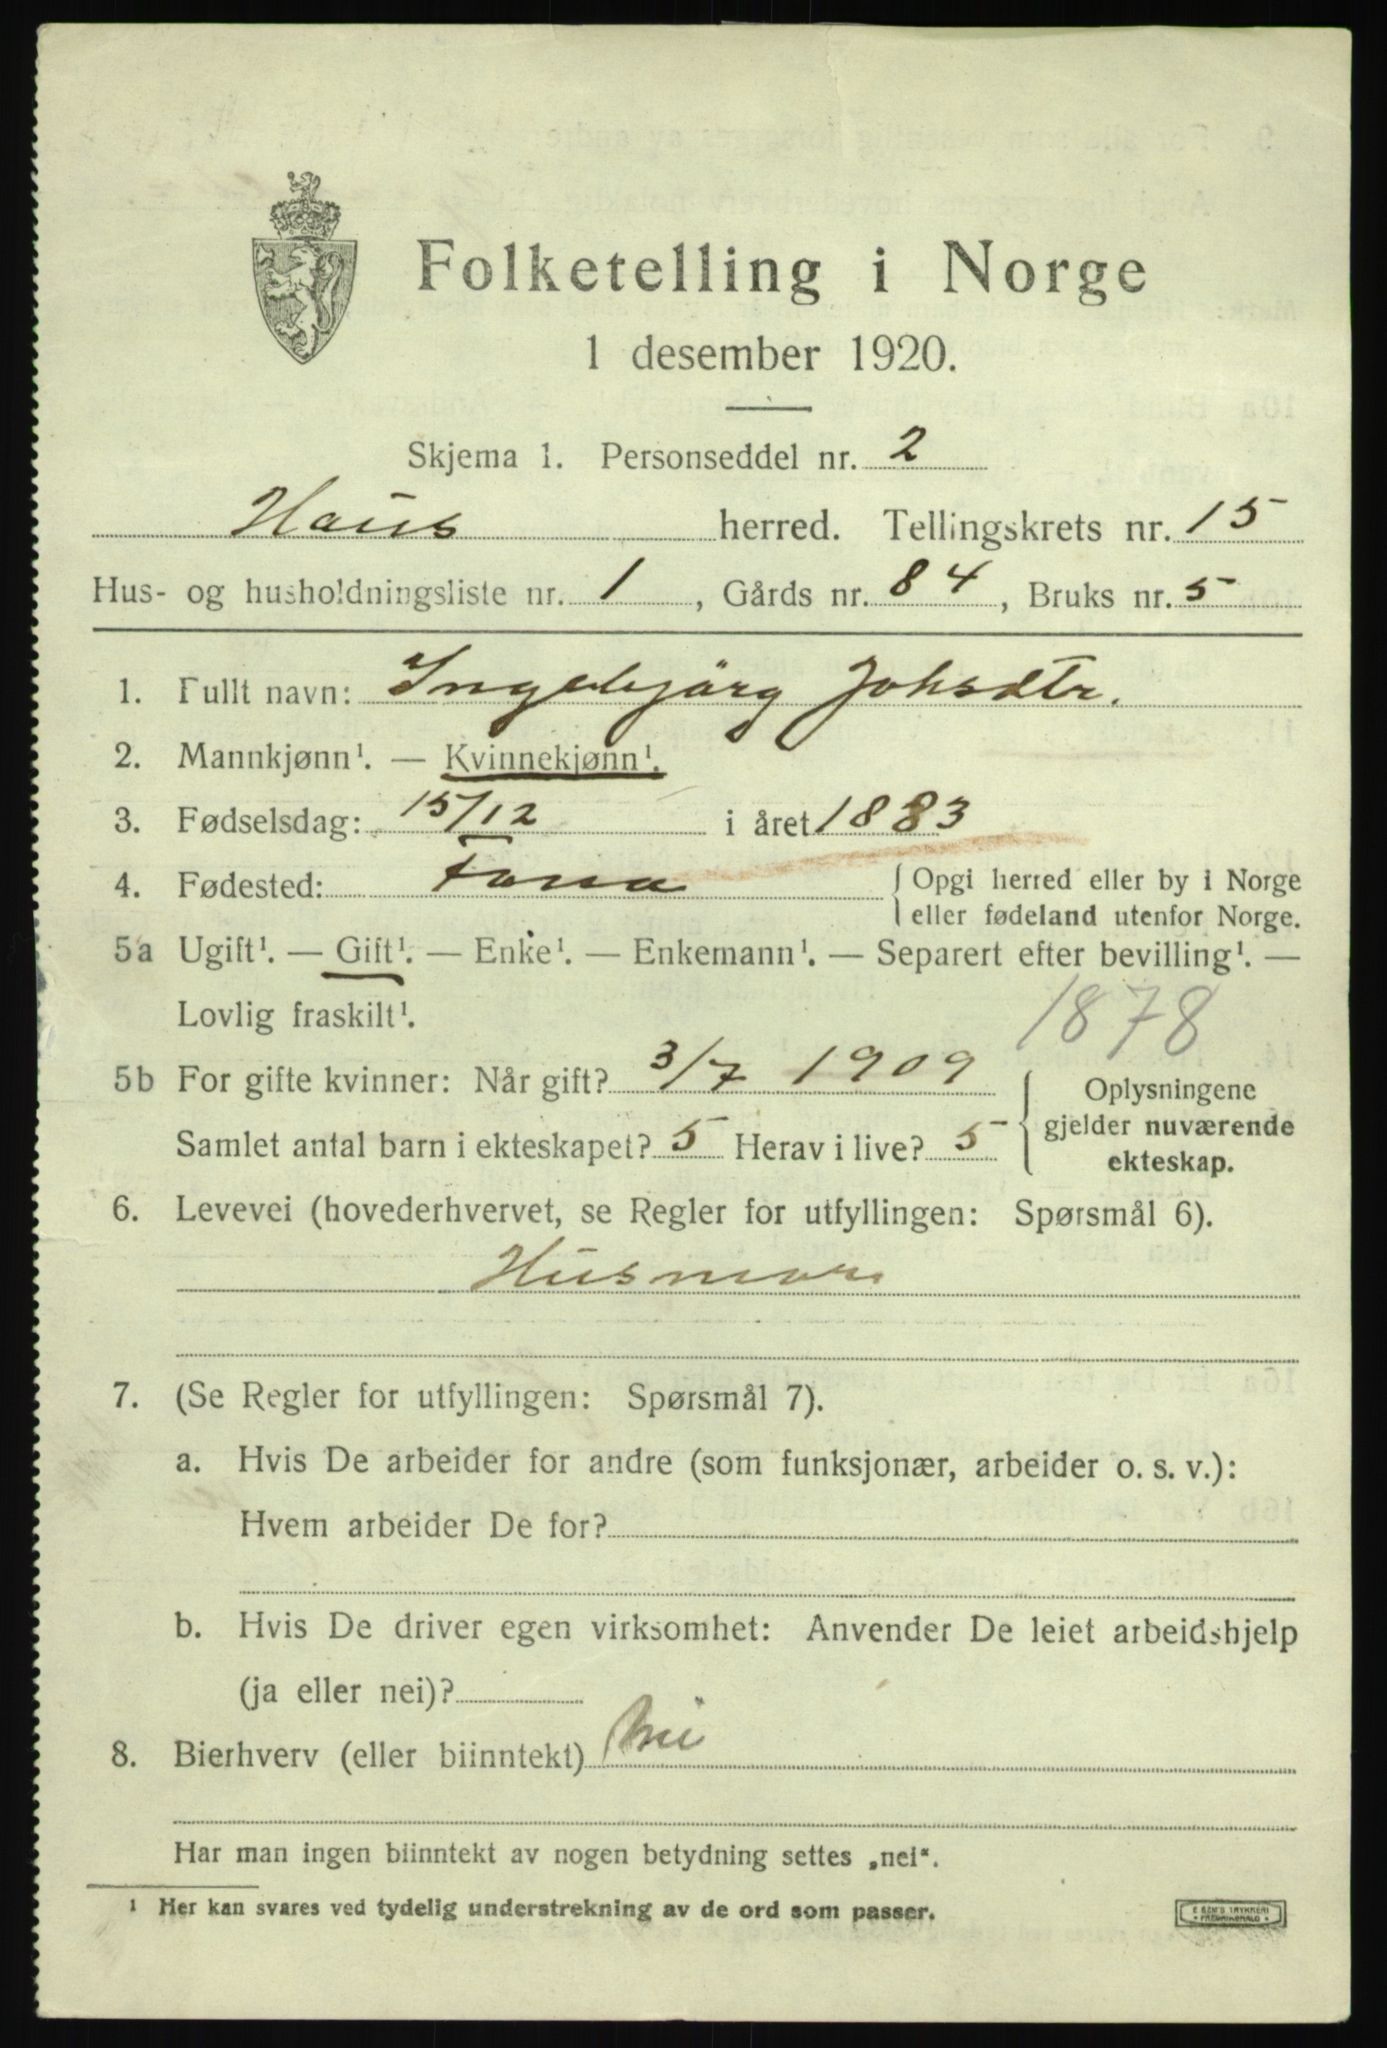 Folketelling i Norge
1 desember 1920.
Skjema 1. Personseddel nr. 2
Haus herred. Tellingskrets nr. 15
Hus- og husholdningsliste nr. 1, Gårds nr. 84, Bruks nr. 5
1. Fullt navn: Ingebjörg Johsdtr.
2. Mannkjønn¹. — Kvinnekjønn¹.
3. Fødselsdag: 15/12 i året 1883
4. Fødested: Fana { Opgi herred eller by i Norge
eller fødeland utenfor Norge.
5a Ugift¹. — Gift¹. — Enke¹. — Enkemann¹. — Separert efter bevilling¹. —
Lovlig fraskilt¹.
1878
5b For gifte kvinner: Når gift? 3/7 1909
Samlet antal barn i ekteskapet? 5 Herav i live? 5
{ Oplysningene
gjelder nuværende
ekteskap.
6. Levevei (hovederhvervet, se Regler for utfyllingen: Spørsmål 6).
Husmor
7. (Se Regler for utfyllingen: Spørsmål 7).
a. Hvis De arbeider for andre (som funksjonær, arbeider o. s. v.):
Hvem arbeider De for?
b. Hvis De driver egen virksomhet: Anvender De leiet arbeidshjelp
(ja eller nei)?
8. Bierhverv (eller biinntekt) nei
Har man ingen biinntekt av nogen betydning settes „nei“.
¹ Her kan svares ved tydelig understrekning av de ord som passer.